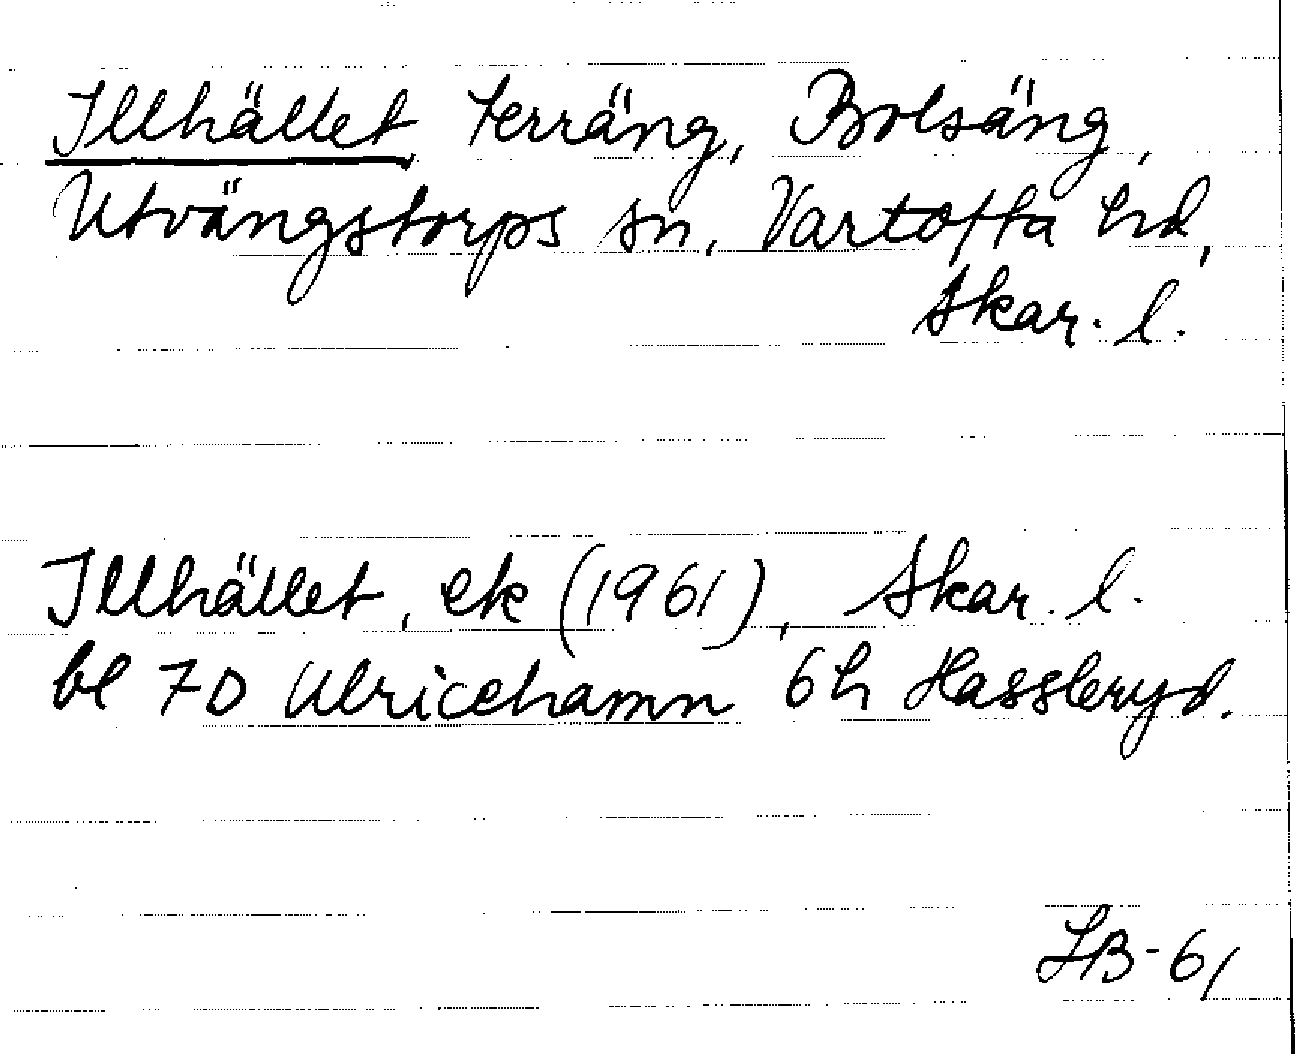 Illhället terräng, Bolsäng,
Utvängstorps sn, Vartofta hd,
Skar. l.
Illhället, ek (1961), Skar. l.
bl 7D Ulricehamn 6h Hassleryd.
LB-61